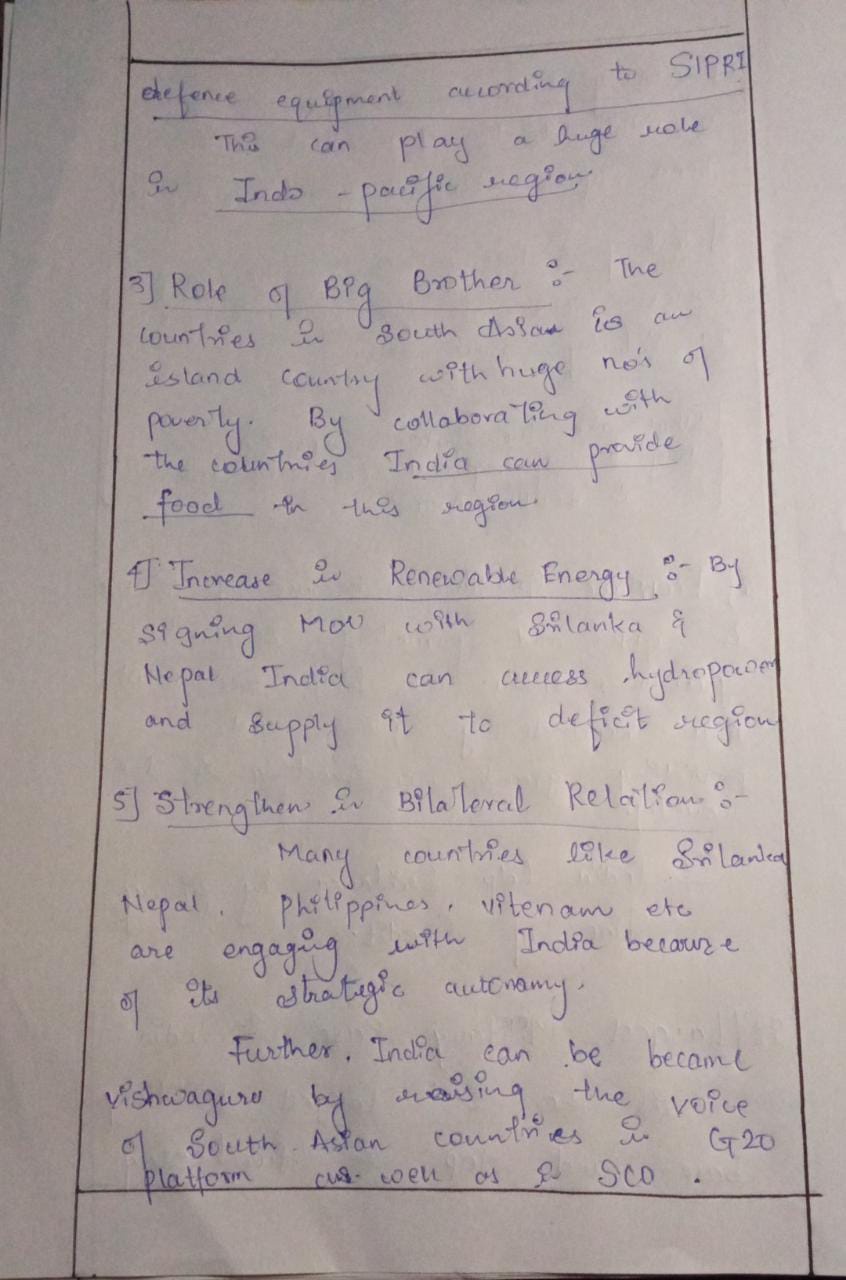 defence equipment according to SIPRI
This can play a huge role
in Indo - pacific region
3] Role of Big Brother :- The
countries in South Asian is an
island country with huge no's of
poverty. By collaborating with
the countries India can provide
food in this region.
4] Increase in Renewable Energy :- By
signing MOU with Srilanka &
Nepal India can access hydropower
and supply it to deficit region
5] Strengthen in Bilateral Relation :-
Many countries like Srilanka
Nepal, Philippines, vitenam etc
are engaging with India because
of its strategic autonomy.
Further, India can be became
vishwaguru by raising the voice
of South Asian countries in G20
platform as well as in SCO .